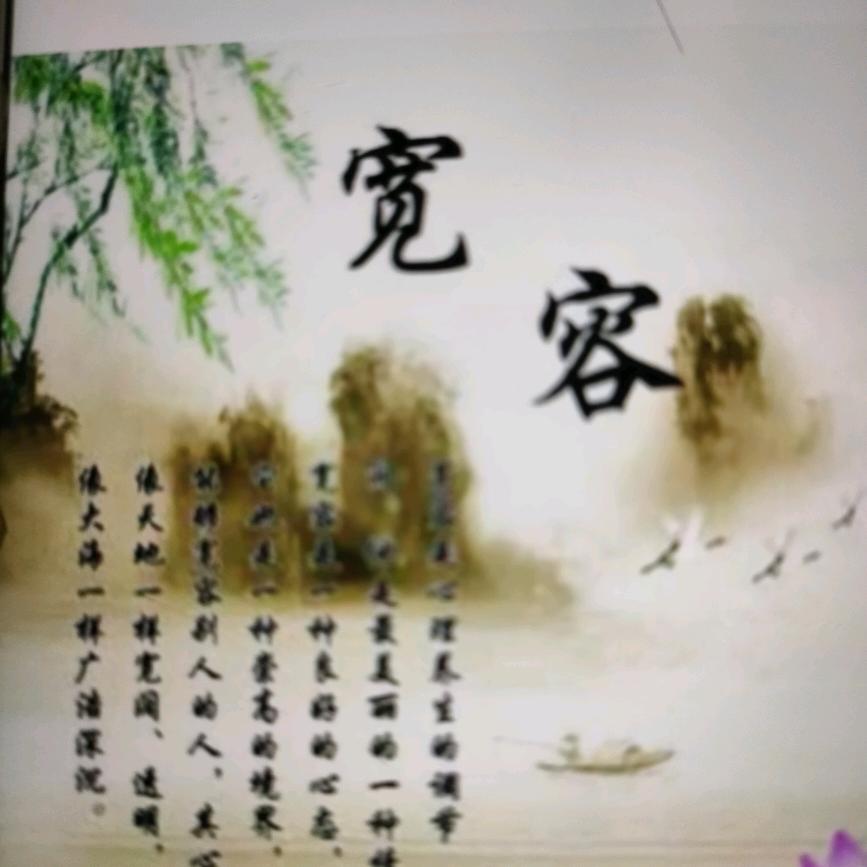 宽容
宽容是心理养生的调节
是最美丽的一种
宽容是一种良好的心态，
也是一种崇高的境界，
能够宽容别人的人，其心
像天地一样宽阔、透明，
像大海一样广浩深沉。